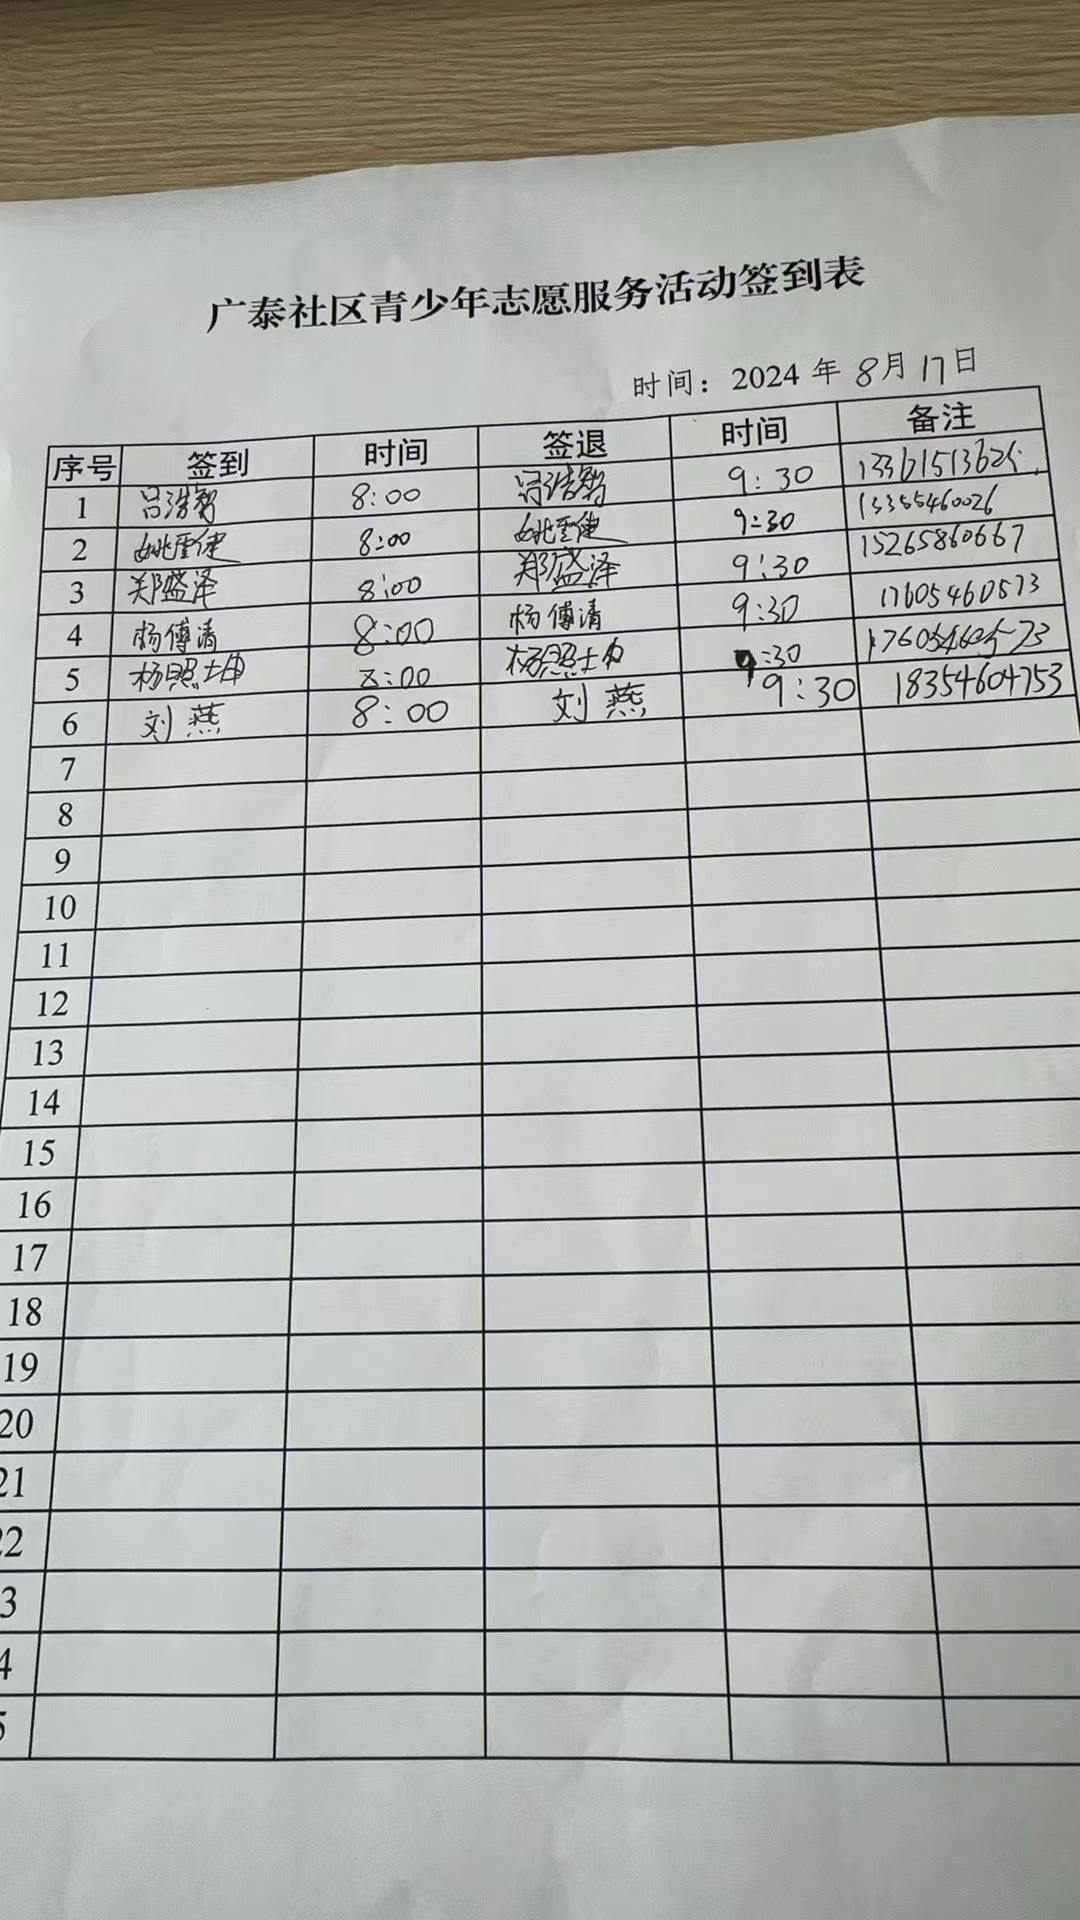 广泰社区青少年志愿服务活动签到表
时间：2024 年 8月17日
序号 签到 时间 签退 时间 备注
1 吕浩 8:00 吕浩 9:30
2 姚雪健 8:00 姚雪健 9:30 15355460026
3 郑盛泽 8:00 郑盛泽 9:30 15265860667
4 杨傅清 8:00 杨傅清 9:30 17605460573
5 杨照坤 8:00 杨照坤 9:30
6 刘燕 8:00 刘燕 9:30 18354604753
7
8
9
10
11
12
13
14
15
16
17
18
19
20
21
22
3
4
5